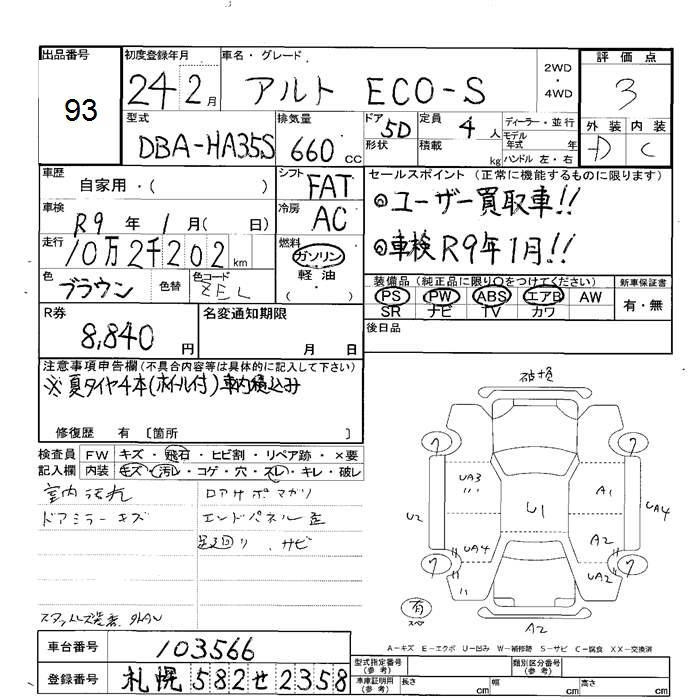 出品番号
93
初度登録年月
24 2月
車名・グレード
アルト ECO-S
2WD
4WD
評価点
3
外装 内装
D C
型式
DBA-HA35S
排気量
660 cc
ドア 5D
形状
定員 4 人
積載 kg
ディーラー・並行
モデル年式 年
ハンドル 左・右
車歴
自家用・( )
シフト FAT
セールスポイント(正常に機能するものに限ります)
◎ユーザー買取車!!
◎車検R9年1月!!
車検
R9年 1月( 日)
冷房 AC
走行
10万2千202km
燃料
ガソリン
軽油
( )
色 ブラウン
色替
色コード ZEL
装備品(純正品に限り○をつけてください)
PS PW ABS エアB AW
SR ナビ TV カワ
新車保証書
有・無
R券
8,840円
名変通知期限
月 日
後日品
注意事項申告欄(不具合内容等は具体的に記入して下さい)
※夏タイヤ4本(ホイル付)車内積込み
修復歴 有 〔箇所 〕
検査員記入欄
FW キズ・飛石・ヒビ割・リペア跡・×要
内装 キズ・汚レ・コゲ・穴・スレ・キレ・破レ
室内汚れ
ロアサポマガリ
ドアミラーキズ
エンドパネル歪
足廻り、サビ
車台番号
103566
登録番号
札幌 582 せ 2358
7 7
UA3 A1
U2 U1 UA4
UA4 A2
7 UA2 7
有
スペ
A2
A-キズ E-エクボ U-凹み W-補修跡 S-サビ C-腐食 XX-交換済
型式指定番号(参考)
類別区分番号(参考)
車庫証明用(参考)
長さ cm
幅 cm
高さ cm